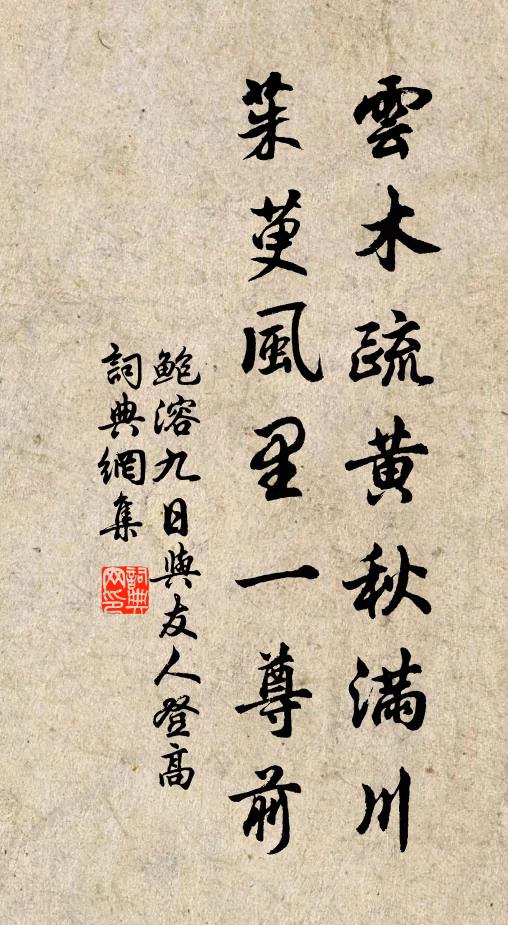 雲木疏黄秋滿川
茱萸風里一尊前
鮑溶九日與友人登高
詞典網集
詞典网印